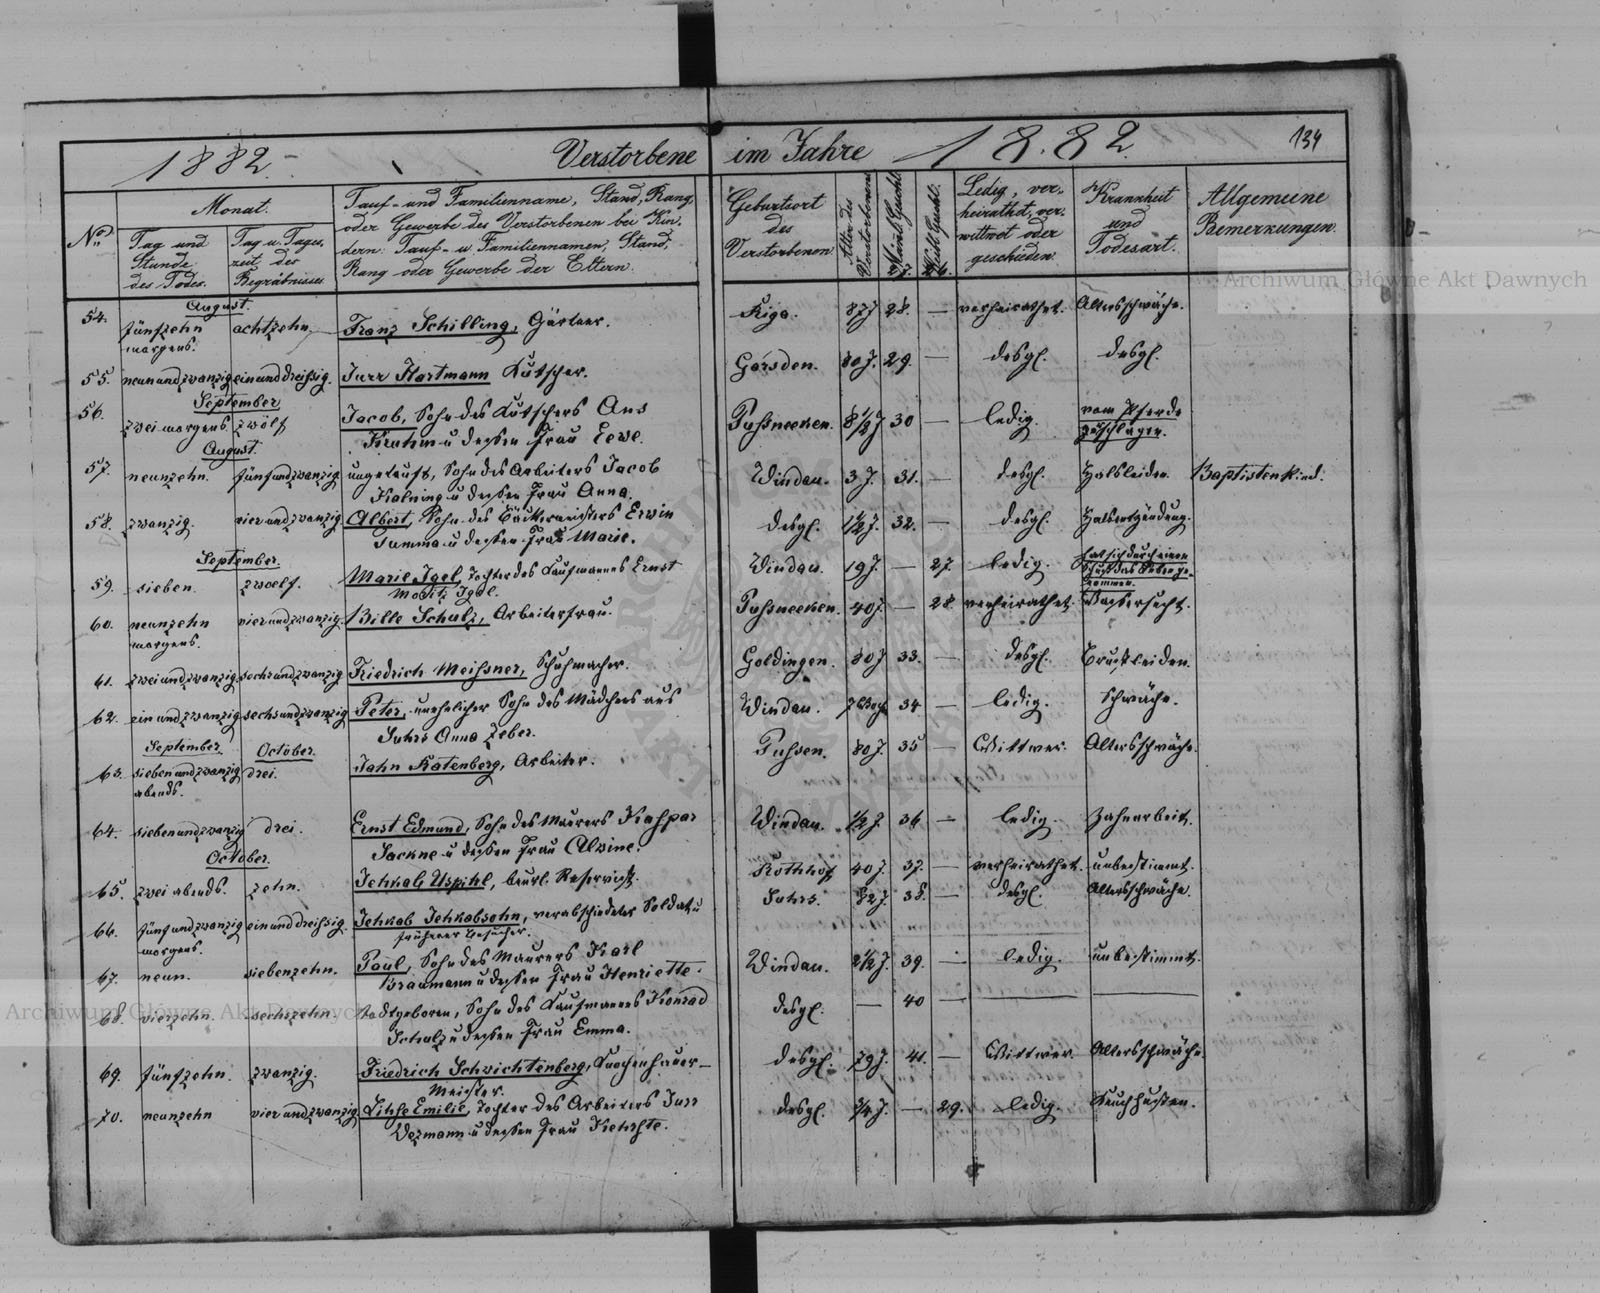 1882.
Verstorbene im Jahre 1882.
134
No.
Monat.
Tag und Stunde des Todes.
Tag u. Tageszeit des Begräbnisses
Tauf- und Familienname, Stand, Rang,
oder Gewerbe des Verstorbenen bei Kin-
dern: Tauf- u. Familiennamen, Stand,
Rang oder Gewerbe der Eltern.
Geburtsort des Verstorbenen.
Alter des Verstorbenen
Männl. Geschl.
Weibl. Geschl.
Ledig, ver-
heirathet, ver-
wittwet oder
geschieden.
Krankheit
und
Todesart.
Allgemeine
Bemerkungen.
Archiwum Główne Akt Dawnych
August.
54. fünfzehn achtzehn. Franz Schilling, Gärtner. Riga. 87 J 28. — verheirathet. Altersschwäche.
morgens.
55. neunundzwanzig einunddreißig. Jurr Hartmann Kutscher. Gorsden. 80 J. 29. — desgl. desgl.
September
56. zwei morgens. zwölf Jacob, Sohn des Kutschers Ans Pussneeken. 8 1/2 J 30 — ledig. vom Pferde
u dessen Frau Eewe. geschlagen.
August.
57. neunzehn. fünfundzwanzig ungetauft, Sohn des Arbeiters Jacob Windau. 3 J. 31. — desgl. Halsleiden. Baptistenkind.
Kalning u dessen Frau Anna.
58. zwanzig. vierundzwanzig Albert, Sohn des Bäckermeisters Erwin desgl. 1 1/2 J. 32. — desgl. Halsentzündung.
Summa u dessen Frau Marie.
September.
59. sieben. zwoelf. Marie Igel, Tochter des Kaufmannes Ernst Windau. 19 J. — 27. ledig. hat sich durch einen
Moritz Igel. Schuss das Leben ge-
nommen.
60. neunzehn vierundzwanzig. Bille Schulz, Arbeiterfrau. Pussneeken. 40 J. — 28. verheirathet. Wassersucht.
morgens.
61. zweiundzwanzig sechsundzwanzig Friedrich Meissner, Schuhmacher. Goldingen. 80 J 33. — desgl. Brustleiden.
62. einundzwanzig sechsundzwanzig Peter, unehelicher Sohn des Mädchens aus Windau. 7 34 — ledig. Schwäche.
Suhrs Anna Zeber.
September October.
63. siebenundzwanzig drei. Jahn Katenberg, Arbeiter. Pussen. 80 J. 35 — Wittwer. Altersschwäche.
abends.
64. siebenundzwanzig drei. Ernst Edmund, Sohn des Maurers Kaspar Windau. 1/2 J. 36 — ledig. Zahnarbeit.
Sackne u dessen Frau Alwine.
October.
65. zwei abends. zehn. Jehkab Uspihl, beurl. Reservist. Rothhof 40 J. 37. — verheirathet. unbestimmt.
66. fünfundzwanzig einunddreißig. Jehkab Jehkabsohn, verabschiedeter Soldat u Suhrs. 82 J. 38. — desgl. Altersschwäche.
morgens. früherer
67. neun. siebenzehn. Paul, Sohn des Maurers Karl Windau. 2 1/2 J. 39. — ledig. unbestimmt.
Braumann u dessen Frau Henriette.
68. vierzehn. sechszehn. todtgeboren, Sohn des Kaufmannes Konrad desgl. — 40 —
Schulz u dessen Frau Emma.
69. fünfzehn. zwanzig. Friedrich Schwichtenberg, Knochenhauer- desgl. 79 J. 41. — Wittwer. Altersschwäche.
Meister.
70. neunzehn vierundzwanzig Lihse Emilie, Tochter des Arbeiters Jurr desgl. 3/4 J. — 29. ledig. Keuchhusten.
Wezmann u dessen Frau
Archiwum Główne Akt Dawnych